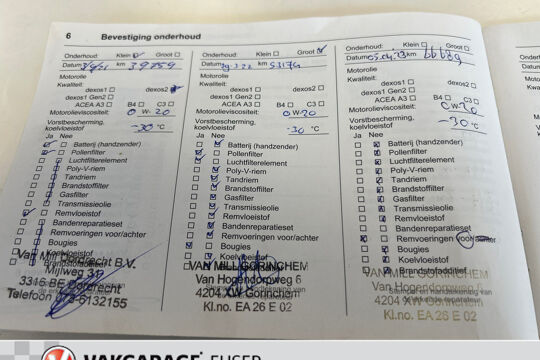 6 Bevestiging onderhoud
Onderhoud: Klein Groot
Datum km 39759
Motorolie
Kwaliteit:
dexos1 dexos2
dexos1 Gen2
ACEA A3 B4 C3
Motorolieviscositeit: 0 W-20
Vorstbescherming, koelvloeistof -30 °C
Ja Nee
Batterij (handzender)
Pollenfilter
Luchtfilterelement
Poly-V-riem
Tandriem
Brandstoffilter
Gasfilter
Transmissieolie
Remvloeistof
Bandenreparatieset
Remvoeringen voor/achter
Bougies
Koelvloeistof
Van Mill Dordrecht B.V.
Mijlweg
3316 BE Dordrecht
Telefoon 078-6132155
Onderhoud: Klein Groot
Datum km 53174
Motorolie
Kwaliteit:
dexos1 dexos2
dexos1 Gen2
ACEA A3 B4 C3
Motorolieviscositeit: 0 W-20
Vorstbescherming, koelvloeistof -30 °C
Ja Nee
Batterij (handzender)
Pollenfilter
Luchtfilterelement
Poly-V-riem
Tandriem
Brandstoffilter
Gasfilter
Transmissieolie
Remvloeistof
Bandenreparatieset
Remvoeringen voor/achter
Bougies
Koelvloeistof
VAN MILL GORINCHEM
Van Hogendorpweg 6
4204 XW Gorinchem
Kl.no. EA 26 E 02
Onderhoud: Klein Groot
Datum km 66689
Motorolie
Kwaliteit:
dexos1 dexos2
dexos1 Gen2
ACEA A3 B4 C3
Motorolieviscositeit: 0 W-20
Vorstbescherming, koelvloeistof -30 °C
Ja Nee
Batterij (handzender)
Pollenfilter
Luchtfilterelement
Poly-V-riem
Tandriem
Brandstoffilter
Gasfilter
Transmissieolie
Remvloeistof
Bandenreparatieset
Remvoeringen voor/achter
Bougies
Koelvloeistof
Brandstofadditief
VAN MILL GORINCHEM
Van Hogendorpweg 6
4204 XW Gorinchem
Kl.no. EA 26 E 02
VAKGARAGE FUSER